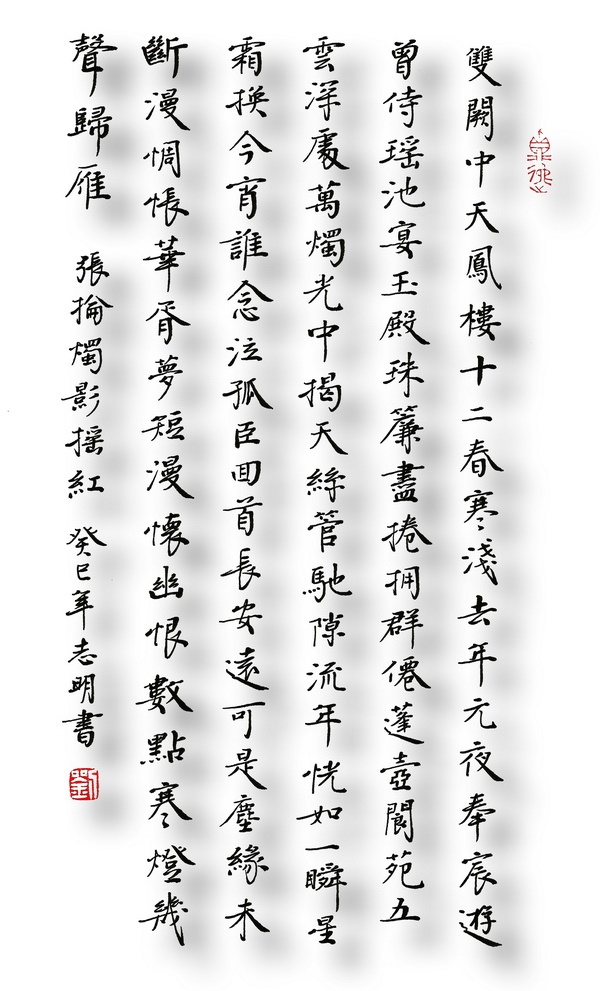 雙闕中天鳳樓十二春寒淺去年元夜奉宸遊
曾侍瑤池宴玉殿珠簾盡捲拥群僊蓬壺閬苑五
雲深處萬燭光中揭天絲管馳隙流年恍如一瞬星
霜換今宵誰念泣孤臣囬首長安遠可是塵緣未
斷漫惆悵華胥夢短漫懷幽恨數點寒燈幾
聲歸雁 張掄燭影搖紅 癸巳年志明書
劉